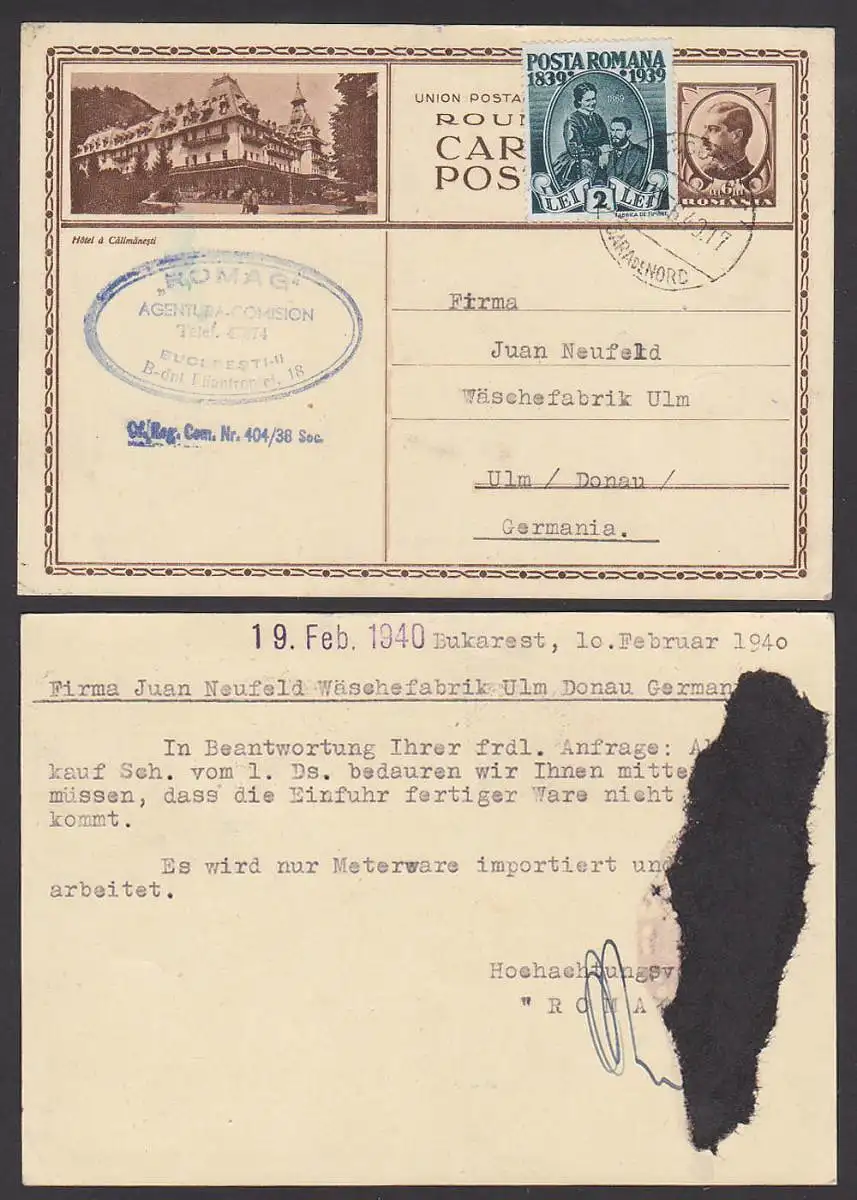 UNION POSTA
ROU
CAR
POS
POSTA ROMANA
1839 1939
1869
LEI 2 LEI
FABRICA DE TIMBRE
6
ROMANIA
GARA DE NORD
Hôtel à Călimănești
"ROMAG"
AGENTURA-COMISION
Telef.
BUCUREȘTI-II
18
Of. Reg. Com. Nr. 404/38 Soc.
Firma
Juan Neufeld
Wäschefabrik Ulm
Ulm / Donau /
Germania.
19. Feb. 1940 Bukarest, 10.Februar 1940
Firma Juan Neufeld Wäschefabrik Ulm Donau German
In Beantwortung Ihrer frdl. Anfrage:
kauf Sch. vom 1. Ds. bedauren wir Ihnen mitte
müssen, dass die Einfuhr fertiger Ware nicht
kommt.
Es wird nur Meterware importiert und
arbeitet.
Hochachtungsv
"ROMA